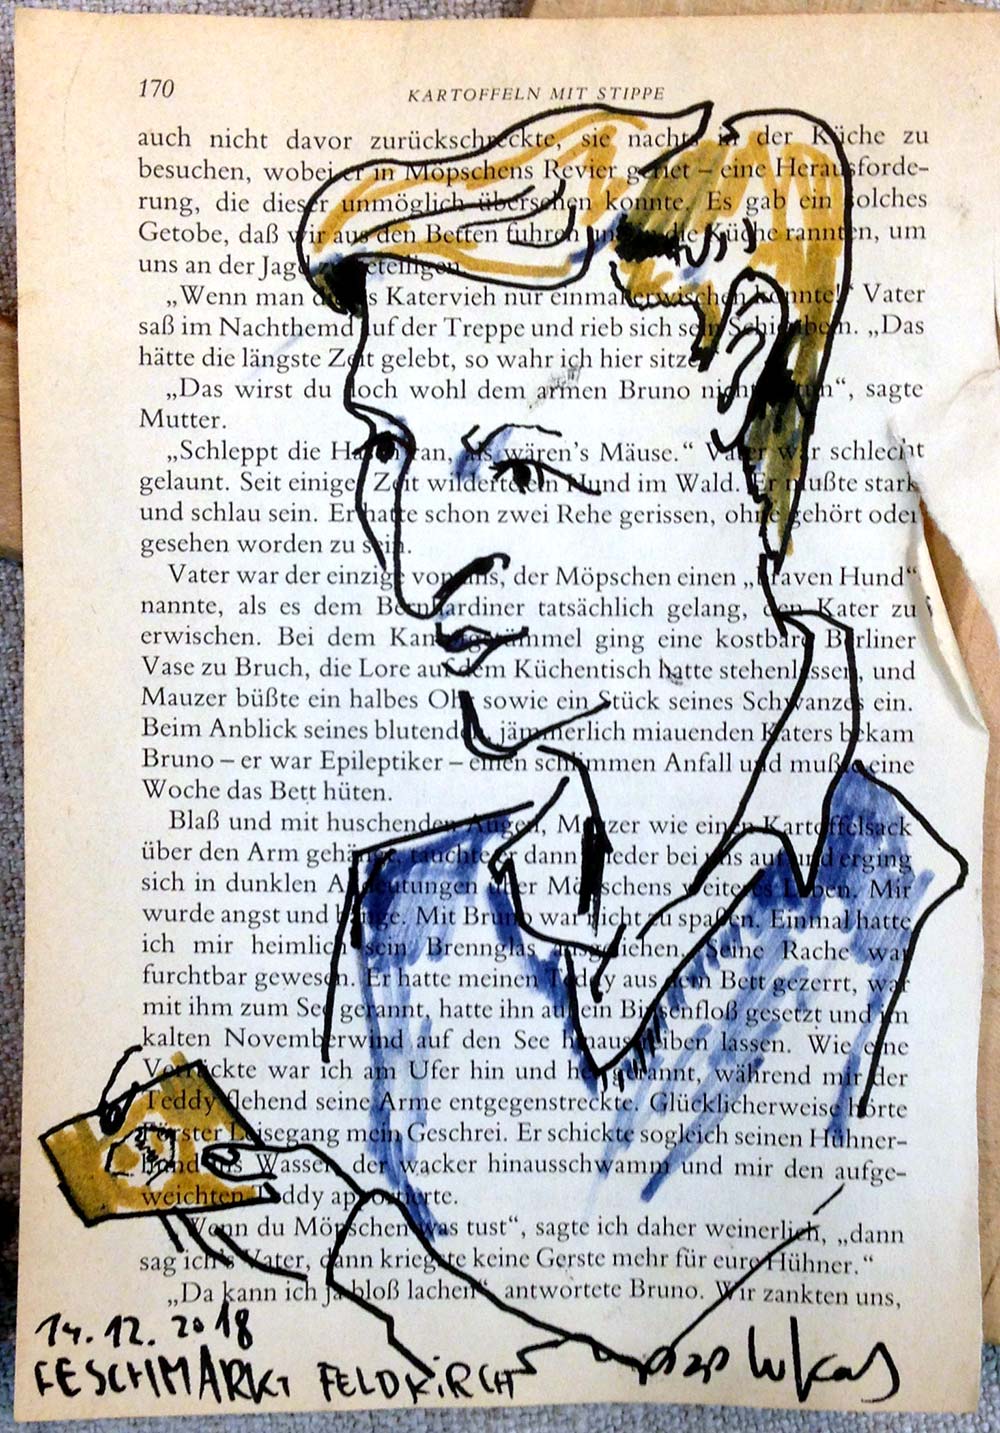 170
KARTOFFELN MIT STIPPE
auch nicht davor zurückschreckte, sie nachts in der Küche zu
besuchen, wobei er in Möpschens Revier geriet – eine Herausforde-
rung, die dieser unmöglich übersehen konnte. Es gab ein solches
Getobe, daß wir aus den Betten fuhren und in die Küche rannten, um
uns an der Jagd zu beteiligen.
„Wenn man dieses Katervieh nur einmal erwischen könnte!“ Vater
saß im Nachthemd auf der Treppe und rieb sich sein Schienbein. „Das
hätte die längste Zeit gelebt, so wahr ich hier sitze
„Das wirst du doch wohl dem armen Bruno nicht antun“, sagte
Mutter.
„Schleppt die Hasen ran, als wären’s Mäuse.“ Vater war schlecht
gelaunt. Seit einiger Zeit wilderte ein Hund im Wald. Er mußte stark
und schlau sein. Er hatte schon zwei Rehe gerissen, ohne gehört oder
gesehen worden zu sein.
Vater war der einzige von uns, der Möpschen einen „braven Hund“
nannte, als es dem Bernhardiner tatsächlich gelang, den Kater zu
erwischen. Bei dem Kampfgetümmel ging eine kostbare Berliner
Vase zu Bruch, die Lore auf dem Küchentisch hatte stehenlassen, und
Mauzer büßte ein halbes Ohr sowie ein Stück seines Schwanzes ein.
Beim Anblick seines blutenden, jämmerlich miauenden Katers bekam
Bruno – er war Epileptiker – einen schlimmen Anfall und mußte eine
Woche das Bett hüten.
Blaß und mit huschenden Augen, Mauzer wie einen Kartoffelsack
über den Arm gehängt, tauchte er dann wieder bei uns auf und erging
sich in dunklen Andeutungen über Möpschens weiteres Leben. Mir
wurde angst und bange. Mit Bruno war nicht zu spaßen. Einmal hatte
ich mir heimlich sein Brennglas ausgeliehen. Seine Rache war
furchtbar gewesen. Er hatte meinen Teddy aus dem Bett gezerrt, war
mit ihm zum See gerannt, hatte ihn auf ein Binsenfloß gesetzt und im
kalten Novemberwind auf den See hinaustreiben lassen. Wie eine
Verrückte war ich am Ufer hin und her gerannt, während mir der
Teddy flehend seine Arme entgegenstreckte. Glücklicherweise hörte
Förster Leisegang mein Geschrei. Er schickte sogleich seinen Hühner-
hund ins Wasser, der wacker hinausschwamm und mir den aufge-
weichten Teddy apportierte.
„Wenn du Möpschen was tust“, sagte ich daher weinerlich, „dann
sag ich’s Vater, dann kriegste keine Gerste mehr für eure Hühner.“
„Da kann ich ja bloß lachen“, antwortete Bruno. Wir zankten uns,
14.12.2018
FESCHMARKT FELDKIRCH
lukas